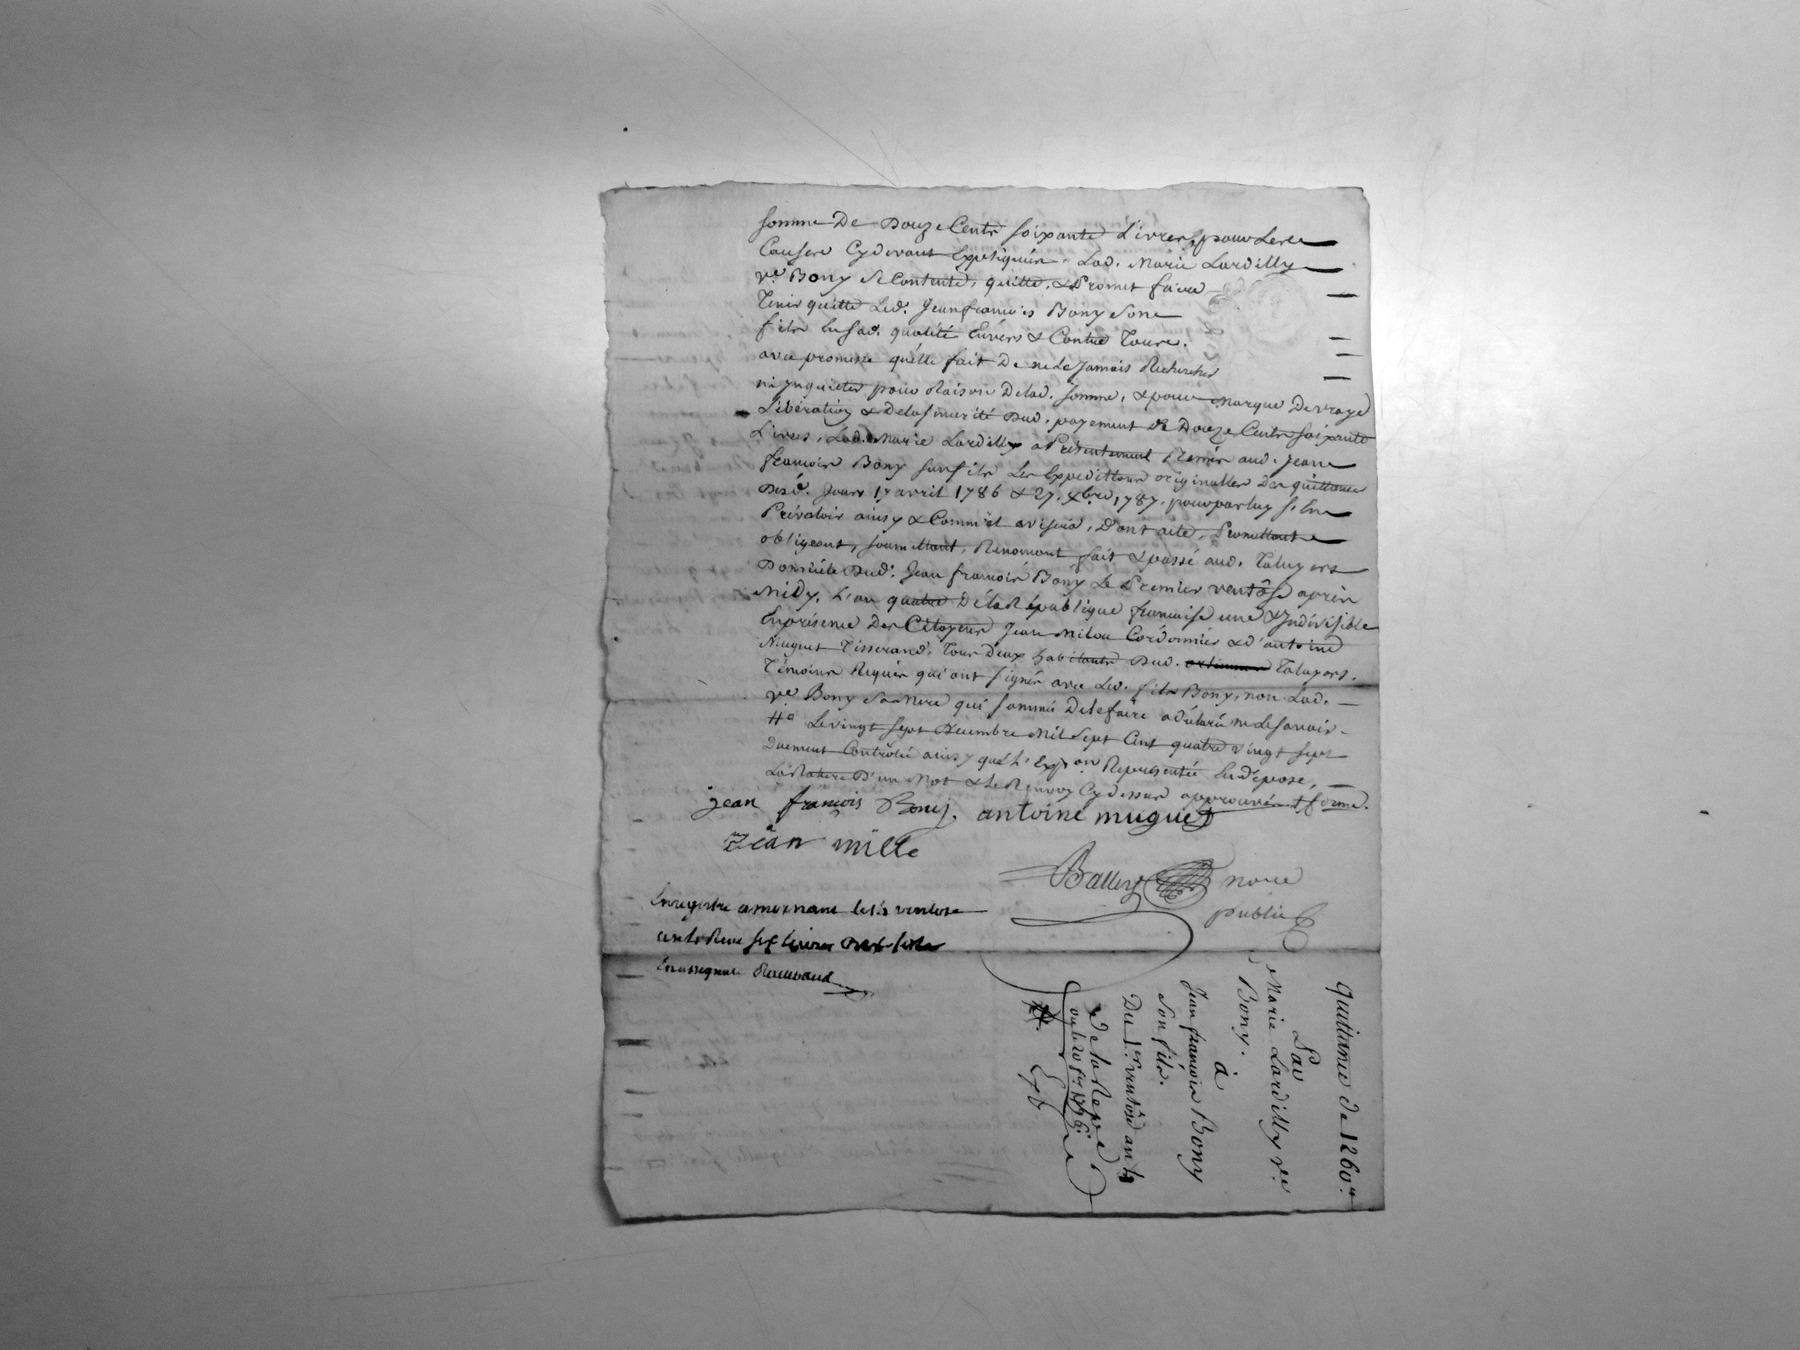 somme De Douze Cents soixante Livres, pour Les
Causes Cydevant Expliquées. Lad. Marie Lardilly
ve. Bony se Contente, quitte, & Promet faire
Tenir quitte Led. Jean françois Bony Son
fils en sad. qualité Envers & Contre Tous.
avec promesse quelle fait De ne Le Jamais Rechercher
ni Inquieter pour Raison De lad. somme, & pour marque De vraye
Libération & De la sincerité Dud. payement de Douze Cents soixante
Livres, Lad. Marie Lardilly a Présentement Remis aud. Jean
françois Bony son fils Les Expeditions originalles Des quittances
Desd. Jours 17 avril 1786 & 27. Xbre 1787. pour par luy s'En
Prévaloir ainsy & Comm'il avisera, Dont acte, Promettant
obligeant, soumettant, Renonçant fait & passé aud. Taluyers
Domicile Dud. Jean françois Bony Le Premier ventôse après
Midy, L'an quatre De la République française une & Indivisible
En présence Des Citoyens Jean Milou Cordonnier & d'antoine
Muguet Tisserand, Tous Deux habitants Dud. Taluyers.
Témoins Requis qui ont signés avec Led. fils Bony, non Lad.
ve. Bony Sa Mere qui sommée De le faire a Déclaré ne Le savoir.
# Le vingt sept Decembre Mil Sept Cent quatre vingt sept
Duement Controlée ainsy que L'Expon Représentée En dépose,
La Rature D'un Mot & Le Renvoy Cydessus approuvés
jean françois Bony. antoine muguet
Jean mille
Ballers nore
public
Enregistré a mornant le ventose
En assignat
Quittance de 1260
Par
Marie Lardilly ve
Bony.
à
Jean françois Bony
Son fils.
Du 1er ventôse an 4
De la Repe
Exp